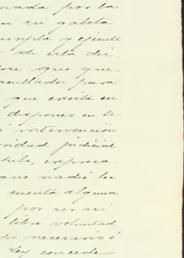 nada por la
en su gaveta
cumpla y ejecute
de esta dis-
que que-
facultados para
que exista en
disponer en to-
intervencion
ridad judicial
tula, expresa-
que nadie les
cuenta alguna
por ser así
libre voluntad,
necesario ó
Ley concede